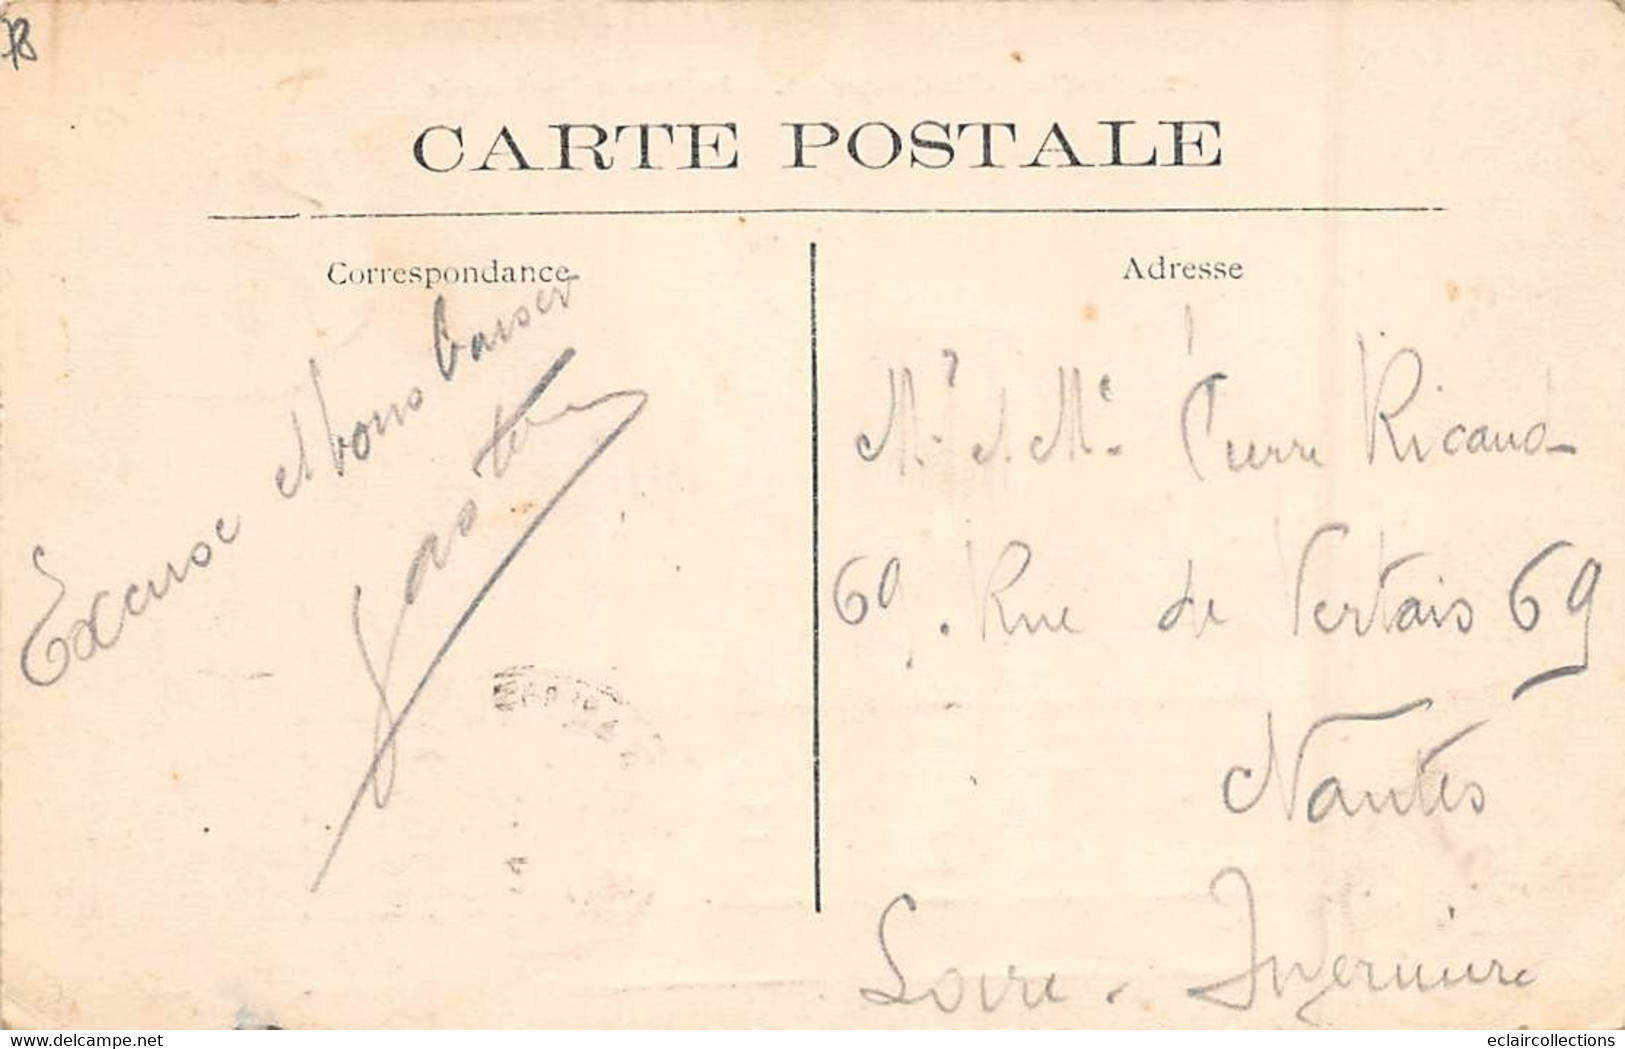 78
CARTE POSTALE
Correspondance
Adresse
Excuse et bons baisers
Gaston
Mr. & Me. Pierre Ricaud
69. Rue de Vertais 69
Nantes
Loire. Inferieure
www.delcampe.net
eclaircollections